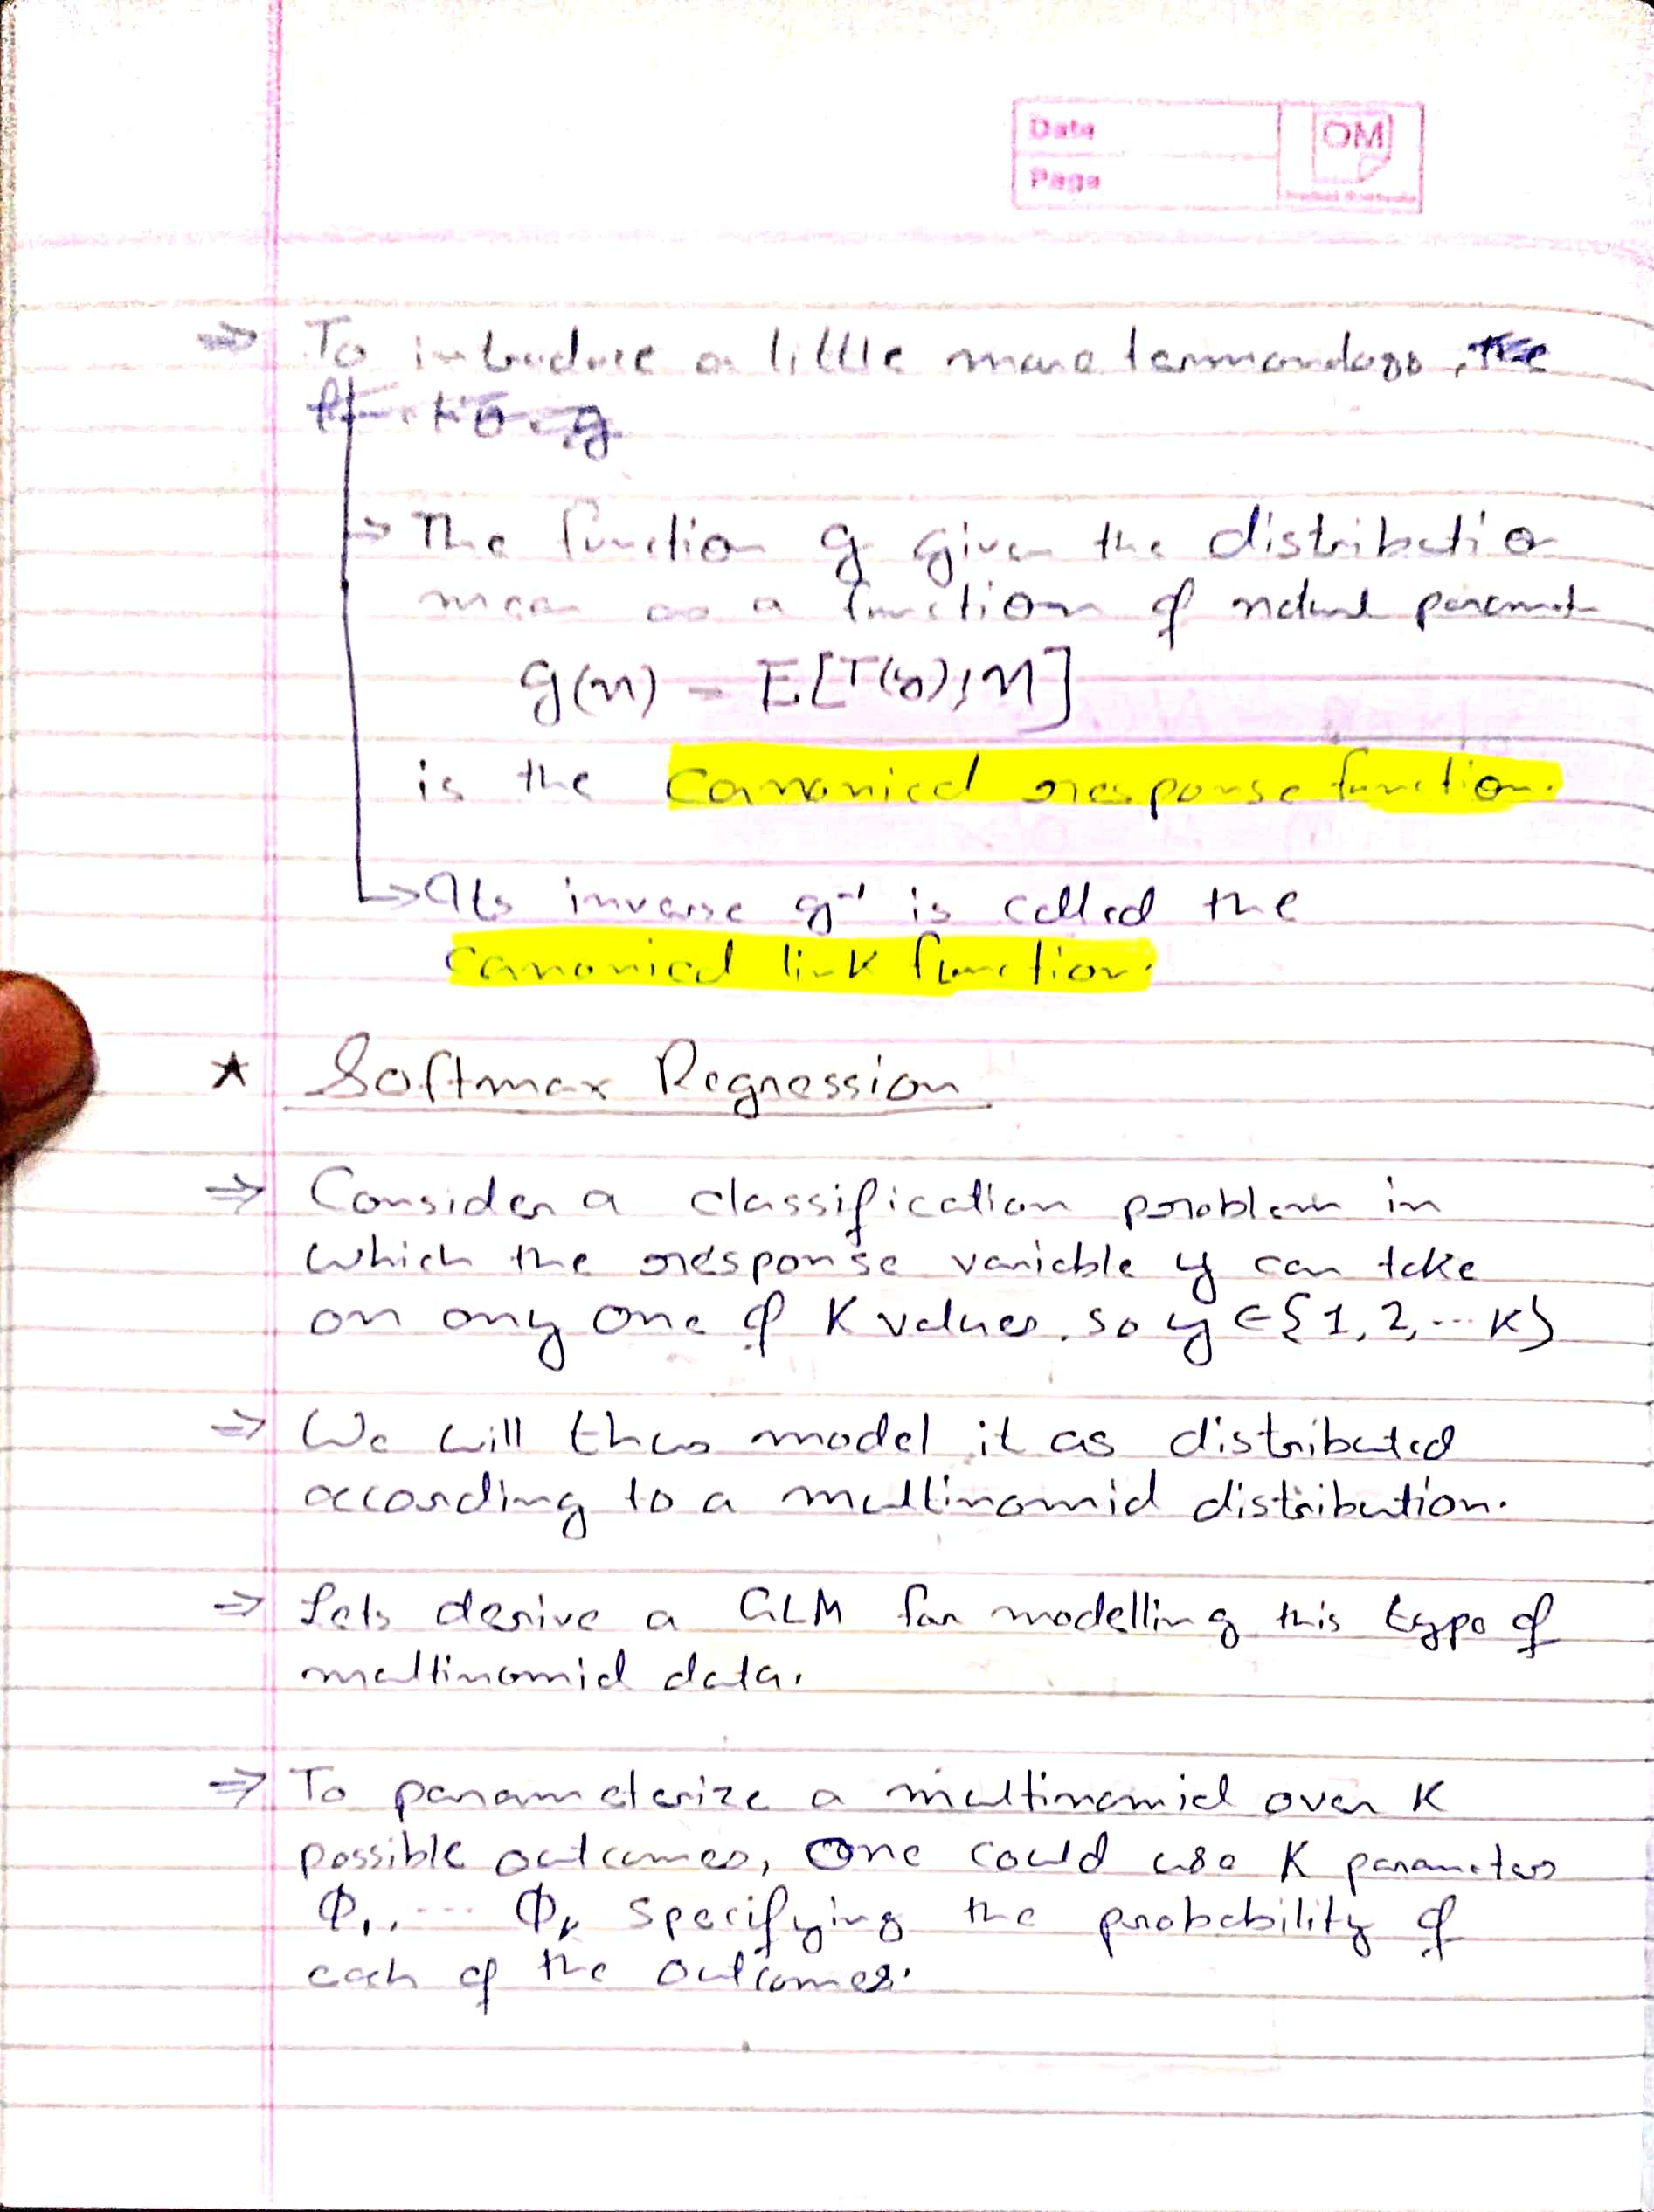 Date
OM
Page
⇒ To introduce a little more termonology, The
function g
→ The function g given the distribution
mean as a function of natural paramet
g(η) = E[T(y);η]
is the canonical response function.
↳ Its inverse g⁻¹ is called the
canonical link function.
★ Softmax Regression
⇒ Consider a classification problem in
which the response variable y can take
on any one of K values, so y ∈ {1, 2, ... K}
⇒ We will thus model it as distributed
according to a multinomial distribution.
⇒ Lets derive a GLM for modelling this type of
multinomial data.
⇒ To parameterize a multinomial over K
possible outcomes, One could use K parameters
Φ₁, ... Φₖ specifying the probability of
each of the outcomes.